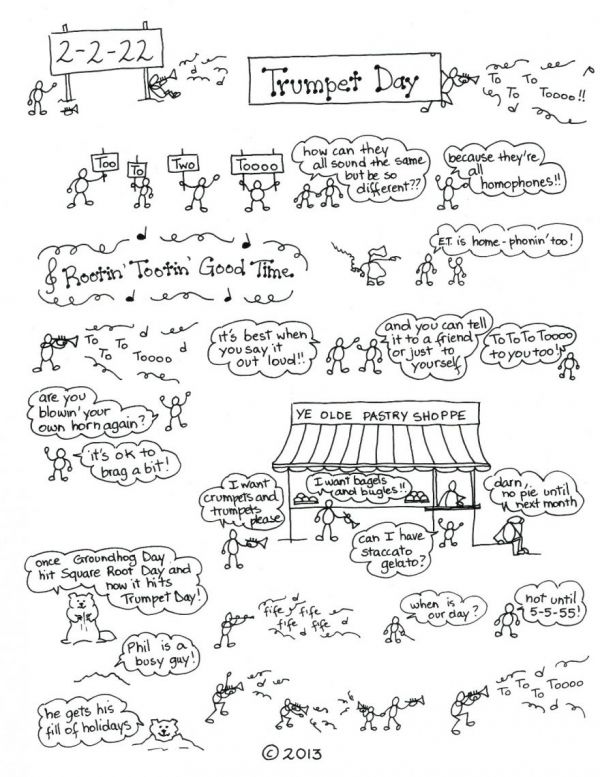 2-2-22
Trumpet Day
To To
To Toooo!!
Too
To
Two
Toooo
how can they
all sound the same
but be so
different??
because they're
all
homophones!!
E.T. is home-phonin' too!
Rootin' Tootin' Good Time
To To
To Toooo
it's best when
you say it
out loud!!
and you can tell
it to a friend
or just to
yourself
To To To Toooo
to you too!
are you
blowin' your
own horn again?
it's OK to
brag a bit!
YE OLDE PASTRY SHOPPE
I want
crumpets and
trumpets
please
I want bagels
and bugles!!
can I have
staccato
gelato?
darn,
no pie until
next month
once Groundhog Day
hit Square Root Day and
now it hits
Trumpet Day!
Phil is a
busy guy!
he gets his
fill of holidays
fife fife
fife fife
when is
our day?
not until
5-5-55!
To To
To Toooo
© 2013